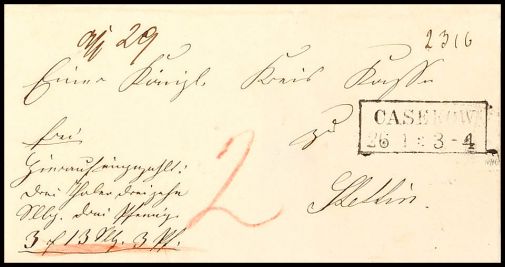 29
2316
Einer Königl. Kreis Kasse
zu
CASEKOW
26 1 * 3-4
Stettin.
frei
Hierauf eingezahlt:
drei Thaler dreizehn
Slbg. drei Pfennig.
3 ₰ 13 Slg. 3 Pf.
2